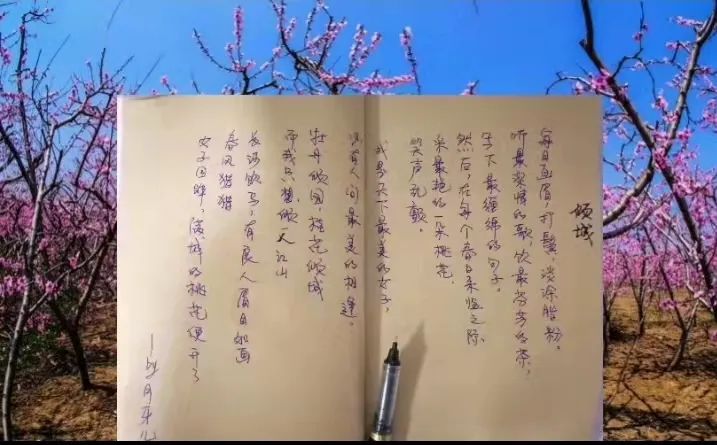 倾城
每日画眉,打鬓,淡涂脂粉。
听最柔情的歌,饮最芬芳的茶,
写下最缠绵的句子。
然后,在每个春日来临之际,
采最艳的一朵桃花,
笑声乱颤。
我是天下最美的女子,
没有人间最美的相逢。
牡丹倾国,桃花倾城
而我只想倾一人江山
长河饮马,有良人眉目如画
春风猎猎
女子回眸,满城的桃花便开了
—by月牙儿